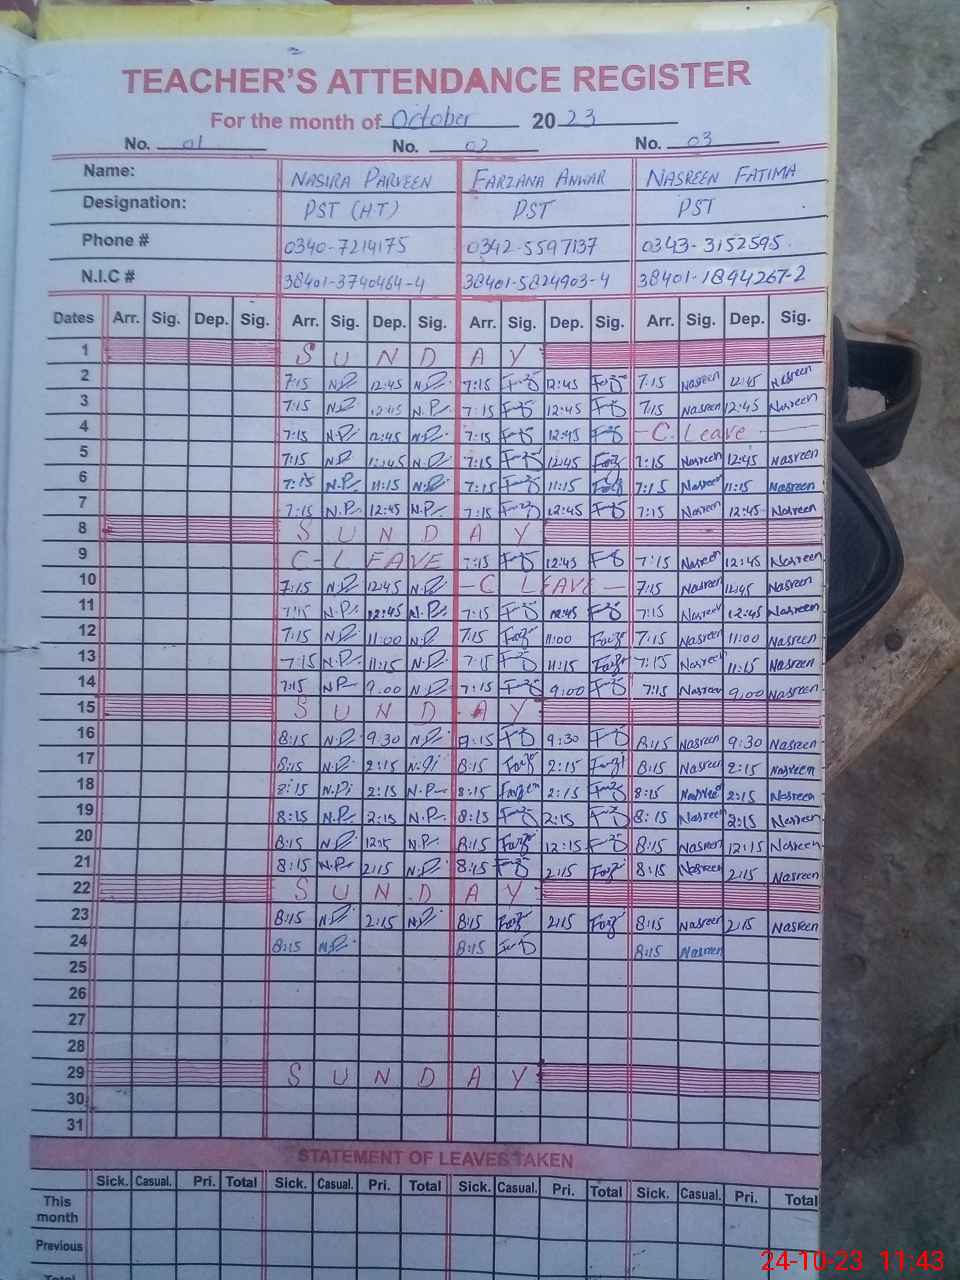 TEACHER'S ATTENDANCE REGISTER
For the month of October 2023
No. 01 No. 02 No. 03
Name: NASIRA PARVEEN FARZANA ANWAR NASREEN FATIMA
Designation: PST (H.T) PST PST
Phone # 0340-7214175 0342-5597137 0343-3152595
N.I.C # 38401-3740464-4 38401-5824903-4 38401-1844267-2
Dates Arr. Sig. Dep. Sig. Arr. Sig. Dep. Sig. Arr. Sig. Dep. Sig. Arr. Sig. Dep. Sig.
1 SUNDAY
2 7:15 N.P. 12:45 N.P. 7:15 12:45 7:15 Nasreen 12:45 Nasreen
3 7:15 N.P. 12:45 N.P. 7:15 12:45 7:15 Nasreen 12:45 Nasreen
4 7:15 N.P. 12:45 N.P. 7:15 12:45 - C. Leave -
5 7:15 N.P. 12:45 N.P. 7:15 12:45 7:15 Nasreen 12:45 Nasreen
6 7:15 N.P. 11:15 N.P. 7:15 11:15 7:15 Nasreen 11:15 Nasreen
7 7:15 N.P. 12:45 N.P. 7:15 12:45 7:15 Nasreen 12:45 Nasreen
8 SUNDAY
9 C-LEAVE 7:15 12:45 7:15 Nasreen 12:45 Nasreen
10 7:15 N.P. 12:45 N.P. - C LEAVE - 7:15 Nasreen 12:45 Nasreen
11 7:15 N.P. 12:45 N.P. 7:15 12:45 7:15 Nasreen 12:45 Nasreen
12 7:15 N.P. 11:00 N.P. 7:15 11:00 7:15 Nasreen 11:00 Nasreen
13 7:15 N.P. 11:15 N.P. 7:15 11:15 7:15 Nasreen 11:15 Nasreen
14 7:15 N.P. 9:00 N.P. 7:15 9:00 7:15 Nasreen 9:00 Nasreen
15 SUNDAY
16 8:15 N.P. 9:30 N.P. 8:15 9:30 8:15 Nasreen 9:30 Nasreen
17 8:15 N.P. 2:15 8:15 2:15 8:15 Nasreen 2:15 Nasreen
18 8:15 N.P. 2:15 N.P. 8:15 2:15 8:15 Nasreen 2:15 Nasreen
19 8:15 N.P. 2:15 N.P. 8:15 2:15 8:15 Nasreen 2:15 Nasreen
20 8:15 N.P. 12:15 N.P. 8:15 12:15 8:15 Nasreen 12:15 Nasreen
21 8:15 N.P. 2:15 N.P. 8:15 2:15 8:15 Nasreen 2:15 Nasreen
22 SUNDAY
23 8:15 N.P. 2:15 N.P. 8:15 2:15 8:15 Nasreen 2:15 Nasreen
24 8:15 N.P. 8:15 8:15 Nasreen
25
26
27
28
29 SUNDAY
30
31
STATEMENT OF LEAVES TAKEN
Sick. Casual. Pri. Total Sick. Casual. Pri. Total Sick. Casual. Pri. Total Sick. Casual. Pri. Total
This
month
Previous
Total
24-10-23 11:43